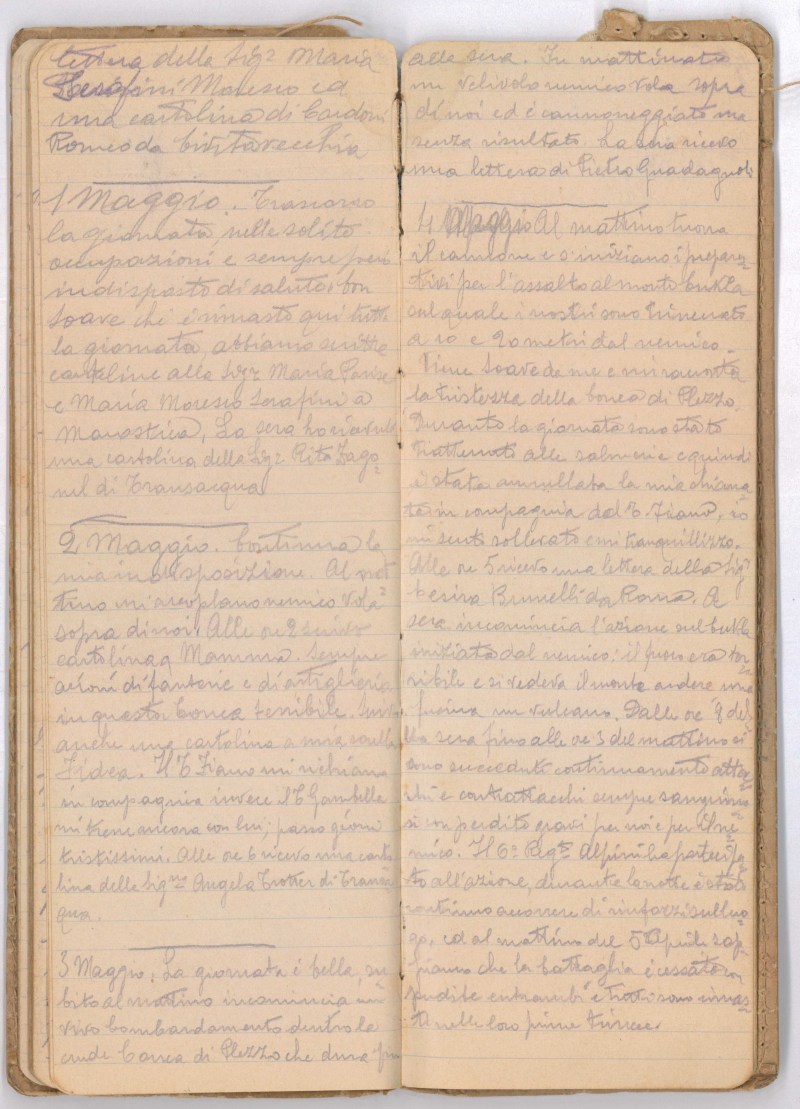 lettera della Sig.ra Maria
Serafini Moresco ed
una cartolina di Cardoni
Romeo da Civitavecchia
1 Maggio. Trascorro
la giornata, nelle solite
occupazioni e sempre però
indisposto di salute; con
Soave che è rimasto qui tutta
la giornata, abbiamo scritto
cartoline alla Sig.ra Maria Parise
e Maria Moresco Serafini a
Marostica. La sera ho ricevuto
una cartolina della Sig.ra Rita Zago=
nel di Transacqua
2 Maggio. Continua la
mia indisposizione. Al mat=
tino un areoplano nemico vola
sopra di noi. Alle ore 2 scrivo
cartolina a Mamma. Sempre
azioni di fanteria e di artiglieria
in questa Conca terribile. Scrivo
anche una cartolina a mia sorella
Fidea. Il T. Fiano mi richiama
in compagnia invece il T. Gambella
mi tiene ancora con lui; passo giorni
tristissimi. Alle ore 6 ricevo una carto
lina della Sig.na Angela Trotter di Transac
qua.
3 Maggio. La giornata è bella, su
bito al mattino incomincia un
vivo bombardamento dentro la
crude Conca di Plezzo che dura fin
alla sera. In mattinata
un velivolo nemico vola sopra
di noi ed è cannoneggiato ma
senza risultato. La sera ricevo
una lettera di Pietro Guadagnoli
4 Maggio Al mattino tuona
il cannone e s'iniziano i prepara=
tivi per l'assalto al monte Cukla
sul quale i nostri sono trincerati
a 10 e 20 metri dal nemico.
Viene Soave da me e mi racconta
la tristezza della conca di Plezzo.
Durante la giornata sono stato
trattenuto alle salmerie e quindi
è stata annullata la mia chiama
ta in compagnia dal T. Fiano, io
mi senti sollevato e mi tranquillizzo.
Alle ore 5 ricevo una lettera della Sig.
Cesira Brunelli da Roma. A
sera incomincia l'azione sul Cukla
iniziata dal nemico: il fuoco era ter=
ribile e si vedeva il monte ardere una
fucina un vulcano. Dalle ore 9 del
la sera fino alle ore 3 del mattino si
sono succeduti continuamente attac
chi e contrattacchi sempre sanguino
si con perdite gravi per noi e per il ne
mico. Il 6° Regto Alpini ha partecipa
to all'azione, durante la notte è stato
continuo accorrere di rinforzi sul luo
go, ed al mattino del 5 Aprile sap=
piamo che la battaglia è cessata con
perdite entrambi e tutti sono rimas
ti nelle loro prime trincee.